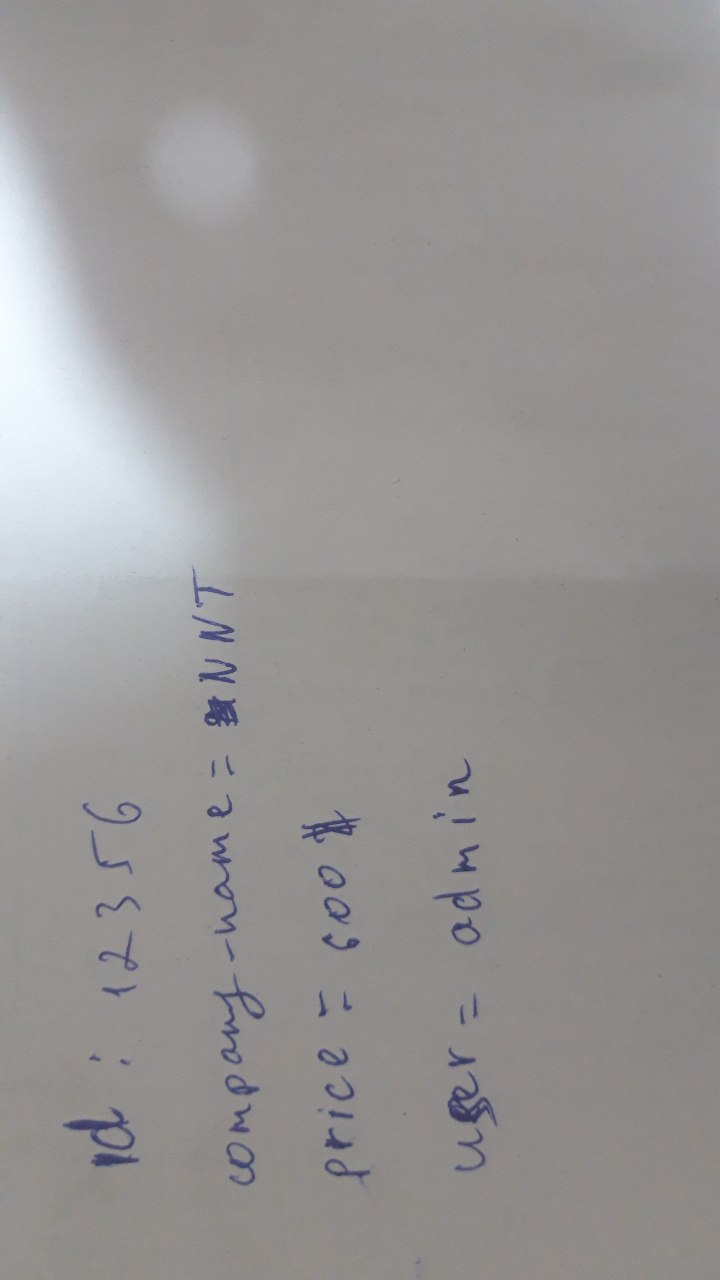 id : 12356
company-name = NNT
price = 600$
user = admin